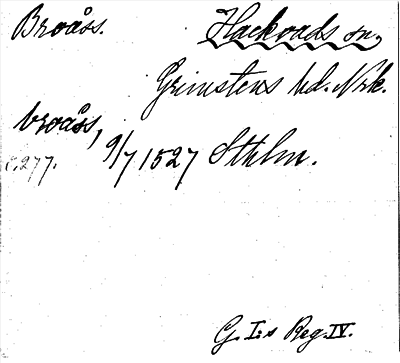 Broåss. Hackvads sn.
Grimstens hd. Nrk.
broåss, 9/7 1527 Sthlm.
c. 277.
G. I:s Reg. IV.